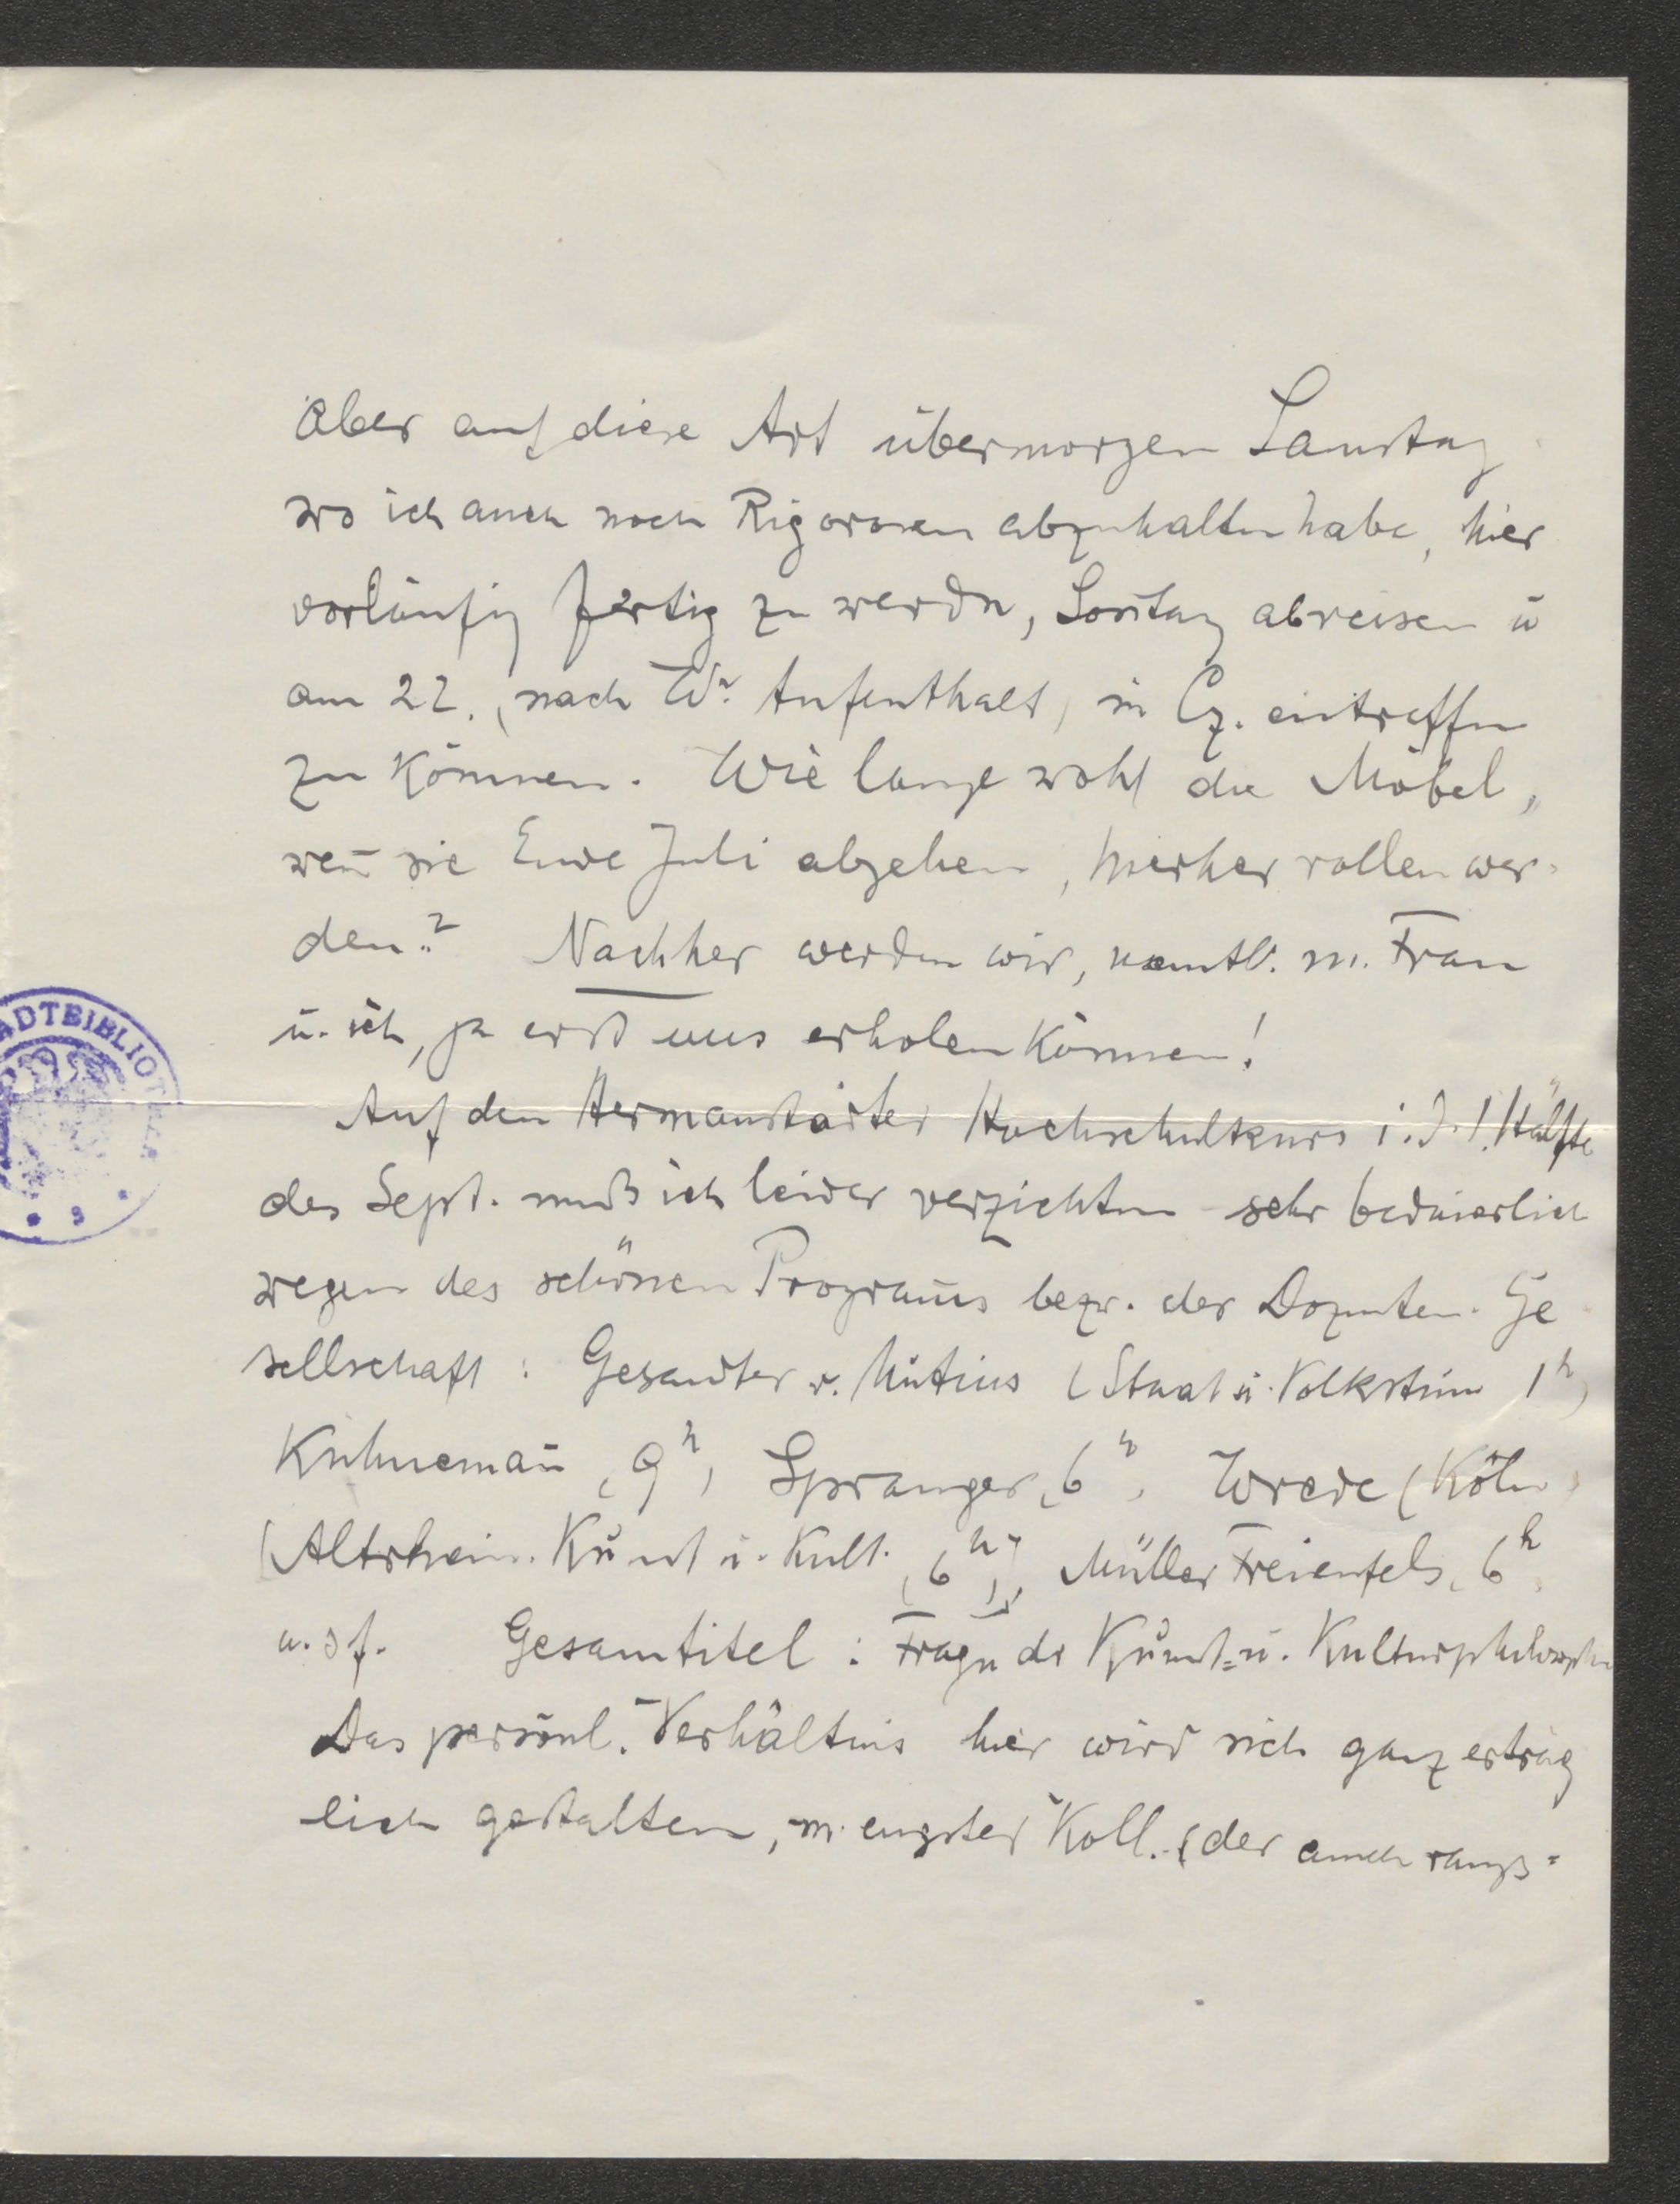 aber auf diese Art übermorgen Samstag
wo ich auch noch Rigorosen abzuhalten habe, hier
vorläufig fertig zu werden, Son̄tag abreisen u
am 22., (nach Wr. Aufenthalt) in Cz. eintreffen
zu können. Wie lange wohl die Möbel,
wen̄ sie Ende Juli abgehen, hierher rollen wer-
den? Nachher werden wir, namtl. m. Frau
u. ich, ja erst uns erholen können!
Auf den Hermanstädter Hochschulkurs i. d. 1. Hälfte
des Sept. muß ich leider verzichten sehr bedauerlich
wegen des schönen Program̄s bezw. der Dozenten-Ge
sellschaft: Gesandter v. Mutius (Staat u. Volkstum 1h)
Kühneman̄ (9h), Spranger (6h), Wrede (Köln)
[Altrhein. Kunst u. Kult. (6h)], Müller Freienfels (6h)
u. s f. Gesamtitel: Fragen der Kunst= u. Kulturphilosophie
Das persönl. Verhältnis hier wird sich ganz erträg
lich gestalten, m. engster Koll. (der auch rangs=
ADTBIBLIOT